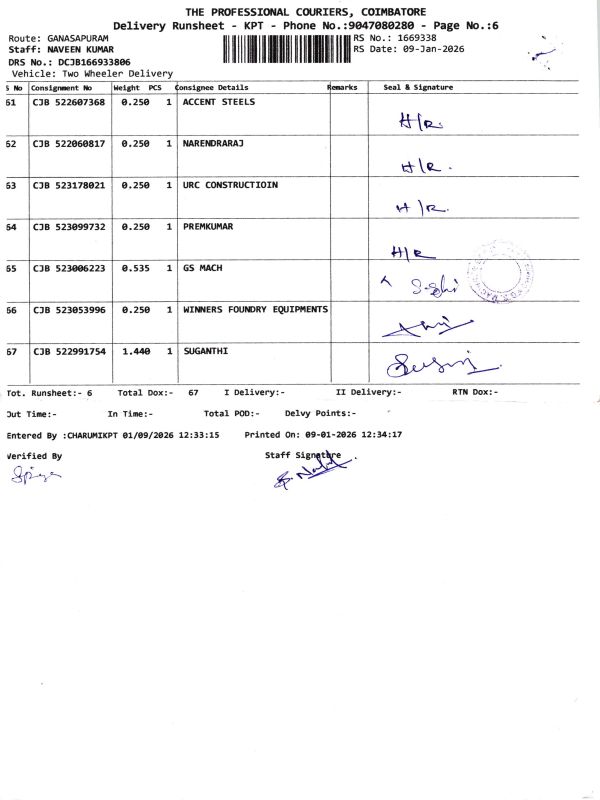 THE PROFESSIONAL COURIERS, COIMBATORE
Delivery Runsheet - KPT - Phone No.:9047080280 - Page No.:6
Route: GANASAPURAM RS No.: 1669338
Staff: NAVEEN KUMAR RS Date: 09-Jan-2026
DRS No.: DCJB166933806
Vehicle: Two Wheeler Delivery
S No Consignment No Weight PCS Consignee Details Remarks Seal & Signature
61 CJB 522607368 0.250 1 ACCENT STEELS H/R.
62 CJB 522060817 0.250 1 NARENDRARAJ H/R.
63 CJB 523178021 0.250 1 URC CONSTRUCTIOIN H/R.
64 CJB 523099732 0.250 1 PREMKUMAR H/R
65 CJB 523006223 0.535 1 GS MACH
66 CJB 523053996 0.250 1 WINNERS FOUNDRY EQUIPMENTS
67 CJB 522991754 1.440 1 SUGANTHI
Tot. Runsheet:- 6 Total Dox:- 67 I Delivery:- II Delivery:- RTN Dox:-
Out Time:- In Time:- Total POD:- Delvy Points:-
Entered By :CHARUMIKPT 01/09/2026 12:33:15 Printed On: 09-01-2026 12:34:17
Verified By Staff Signature